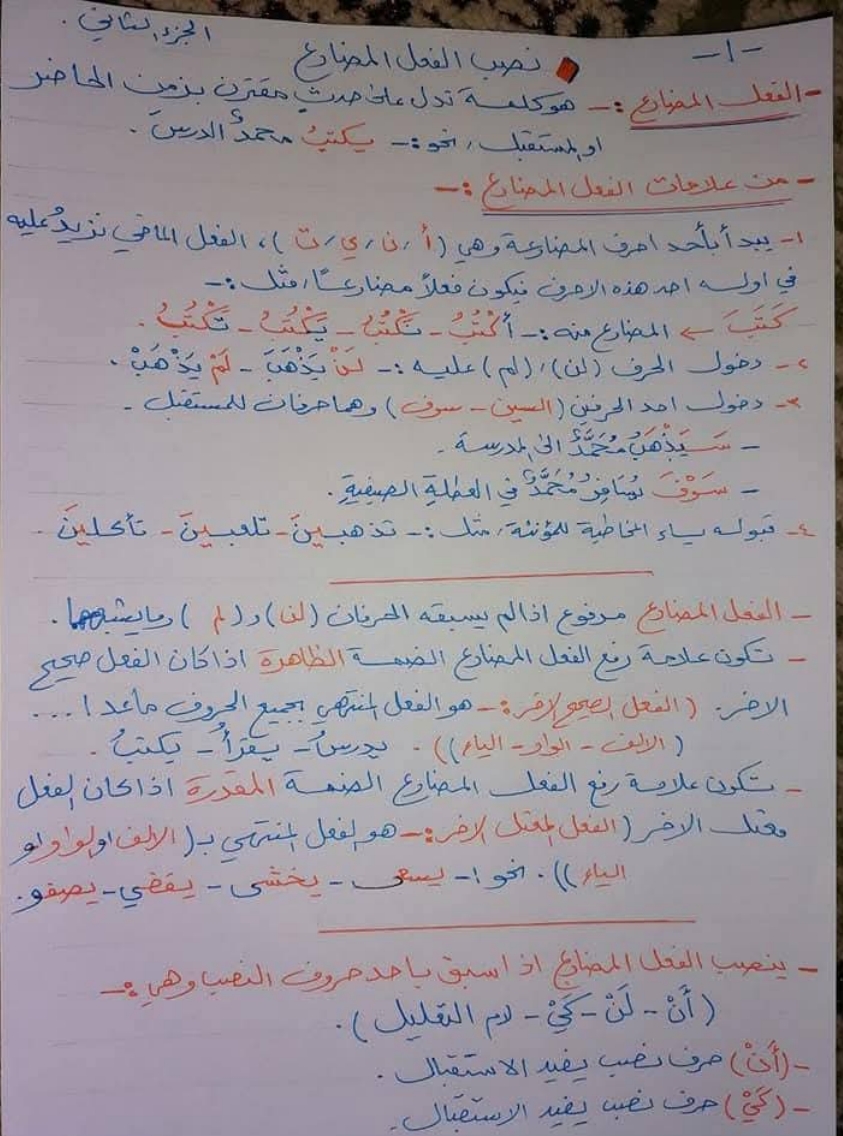 -١-
الجزء الثاني.
نصب الفعل المضارع
- الفعل المضارع :- هو كلمة تدل على حدث مقترن بزمن الحاضر
او المستقبل، نحو :- يكتبُ محمدٌ الدرسَ.
- من علامات الفعل المضارع :-
١- يبدأ بأحد احرف المضارعة وهي (أ، ن، ي، ت)، الفعل الماضي نزيدُ عليه
في اوله احد هذه الاحرف فيكون فعلاً مضارعًا، مثل :-
كَتَبَ ← المضارع منه :- أَكْتُبُ - نَكْتُبُ - يَكْتُبُ - تَكْتُبُ.
٢- دخول الحرف (لن)، (لم) عليه :- لَنْ يَذْهَبَ - لَمْ يَذْهَبْ.
٣- دخول احد الحرفين (السين - سوف) وهما حرفان للمستقبل -
- سَيَذْهَبُ مُحَمَّدٌ الى المدرسة.
- سَوْفَ يُسَافِرُ مُحَمَّدٌ في العطلةِ الصيفيةِ.
٤- قبوله ياء المخاطبة للمؤنثة، مثل :- تذهبينَ - تلعبينَ - تأكلينَ.
- الفعل المضارع مرفوع اذا لم يسبقه الحرفان (لن) و (لم) وما يشبهها.
- تكون علامة رفع الفعل المضارع الضمة الظاهرة اذا كان الفعل صحيح
الاخر. (الفعل الصحيح الاخر :- هو الفعل المنتهي بجميع الحروف ماعدا ...
(الالف - الواو - الياء)). يدرسُ - يقرأُ - يكتبُ.
- تكون علامة رفع الفعل المضارع الضمة المقدرة اذا كان الفعل
معتل الاخر (الفعل المعتل الاخر :- هو الفعل المنتهي بـ (الالف او الواو او
الياء)). نحو :- يسعى - يخشى - يقضي - يصفو.
- ينصب الفعل المضارع اذ اسبق باحد حروف النصب وهي :-
(أَنْ - لَنْ - كَيْ - لام التعليل).
- (أَنْ) حرف نصب يفيد الاستقبال.
- (كَيْ) حرف نصب يفيد الاستقبال.